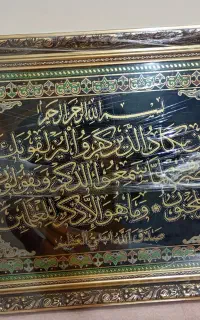 بسم الله الرحمن الرحيم
يكاد الذين كفروا ليزلقونك
لما سمعوا الذكر ويقولون
لمجنون وما هو إلا ذكر للعالمين
صدق الله العلي العظيم